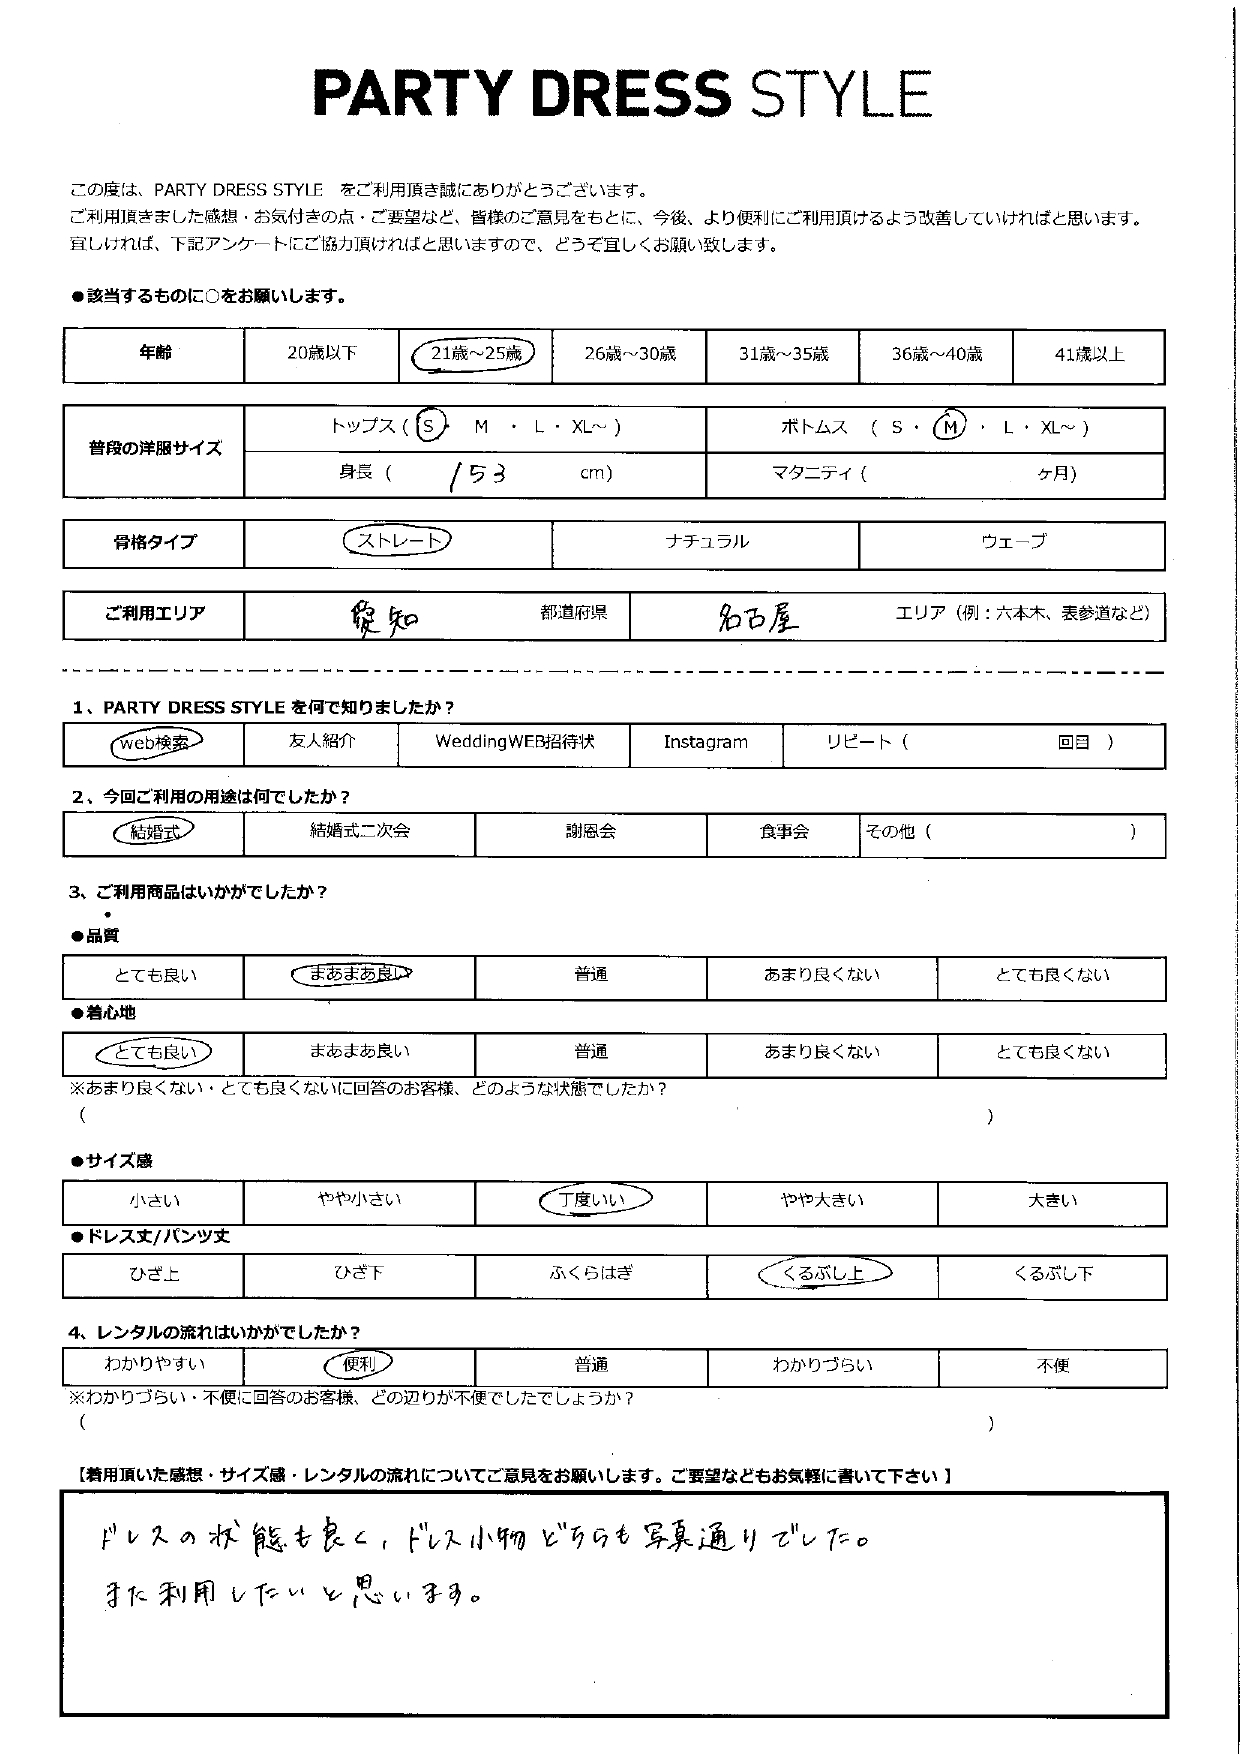 PARTY DRESS STYLE
この度は、PARTY DRESS STYLE をご利用頂き誠にありがとうございます。
ご利用頂きました感想・お気付きの点・ご要望など、皆様のご意見をもとに、今後、より便利にご利用頂けるよう改善していければと思います。
宜しければ、下記アンケートにご協力頂ければと思いますので、どうぞ宜しくお願い致します。
●該当するものに○をお願いします。
年齢 20歳以下 21歳～25歳 26歳～30歳 31歳～35歳 36歳～40歳 41歳以上
普段の洋服サイズ
トップス ( S・ M ・ L・ XL～ ) ボトムス ( S・ M ・ L・ XL～ )
身長 ( 153 cm) マタニティ ( ヶ月)
骨格タイプ ストレート ナチュラル ウェーブ
ご利用エリア 愛知 都道府県 名古屋 エリア（例：六本木、表参道など）
1、PARTY DRESS STYLE を何で知りましたか？
web検索 友人紹介 WeddingWEB招待状 Instagram リピート ( 回目 )
2、今回ご利用の用途は何でしたか？
結婚式 結婚式二次会 謝恩会 食事会 その他 ( )
3、ご利用商品はいかがでしたか？
●品質
とても良い まあまあ良い 普通 あまり良くない とても良くない
●着心地
とても良い まあまあ良い 普通 あまり良くない とても良くない
※あまり良くない・とても良くないに回答のお客様、どのような状態でしたか？
( )
●サイズ感
小さい やや小さい 丁度いい やや大きい 大きい
●ドレス丈/パンツ丈
ひざ上 ひざ下 ふくらはぎ くるぶし上 くるぶし下
4、レンタルの流れはいかがでしたか？
わかりやすい 便利 普通 わかりづらい 不便
※わかりづらい・不便に回答のお客様、どの辺りが不便でしたでしょうか？
( )
【着用頂いた感想・サイズ感・レンタルの流れについてご意見をお願いします。ご要望などもお気軽に書いて下さい 】
ドレスの状態も良く，ドレス小物どちらも写真通りでした。
また利用したいと思います。